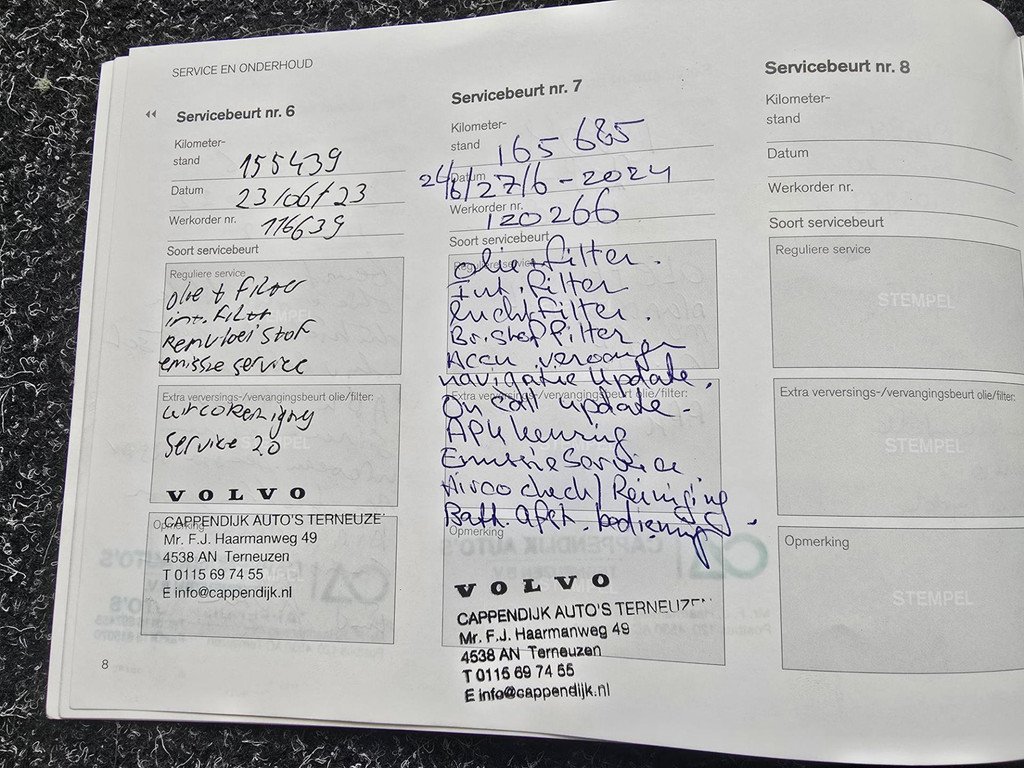 SERVICE EN ONDERHOUD
Servicebeurt nr. 6
Kilometer-
stand
155439
Datum
23/06/23
Werkorder nr.
116639
Soort servicebeurt
Reguliere service
olie + filter
int. filter
Remvloeistof
emissie service
Extra verversings-/vervangingsbeurt olie/filter:
STEMPEL
Service 2.0
VOLVO
Opmerking
CAPPENDIJK AUTO'S TERNEUZE
Mr. F.J. Haarmanweg 49
4538 AN Terneuzen
T 0115 69 74 55
E info@cappendijk.nl
8
Servicebeurt nr. 7
Kilometer-
stand
165685
Datum
24/6/27/6-2024
Werkorder nr.
120266
Soort servicebeurt
Reguliere service
Olie+filter.
Int. filter
luchtfilter.
Br.stof filter
Accu vervangen
navigatie update.
Extra verversings-/vervangingsbeurt olie/filter:
On call update -
APK keuring
Emissie Service
Airco check/Reiniging
Batt. afst. bediening.
Opmerking
VOLVO
CAPPENDIJK AUTO'S TERNEUZEN
Mr. F.J. Haarmanweg 49
4538 AN Terneuzen
T 0115 69 74 55
E info@cappendijk.nl
Servicebeurt nr. 8
Kilometer-
stand
Datum
Werkorder nr.
Soort servicebeurt
Reguliere service
STEMPEL
Extra verversings-/vervangingsbeurt olie/filter:
STEMPEL
Opmerking
STEMPEL